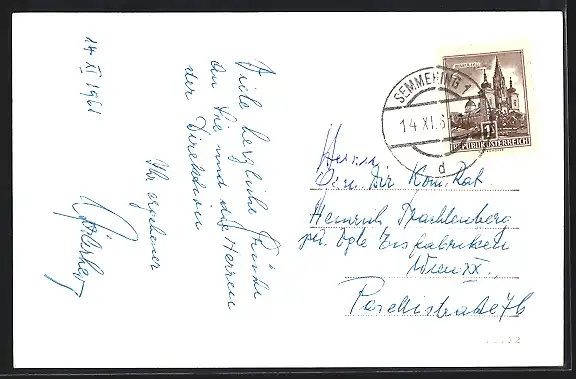 14 XI 1961
Viele herzliche Grüsse
an Sie und die Herren
der Direktion
Ihr ergebener
SEMMERING 1
14.XI.6
d
MARIAZELL
1 S
REPUBLIK ÖSTERREICH
Herrn
Gen. Dir Kom. Rat.
Heinrich Trachtenberg
per. Adr. Eisfabriken
Wien XX.
Pasettistraße 76